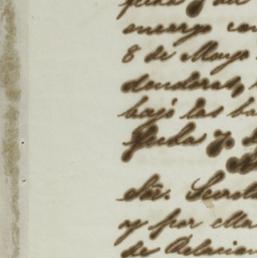 encargo con
8 de Mayo
deudoras,
bajo las ba
fecha y
Sôr. Secreta
y por ella
de Relacion